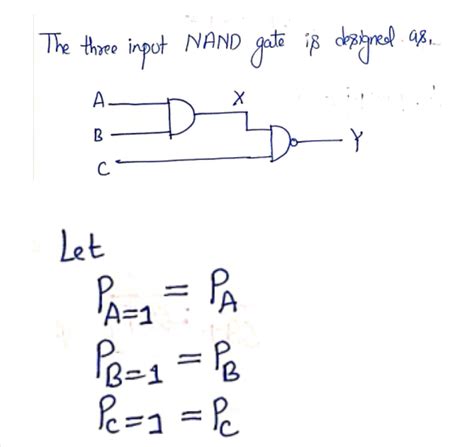 The three input NAND gate is designed as,
A
X
B
Y
C
Let
P_{A=1} = P_A
P_{B=1} = P_B
P_{C=1} = P_C